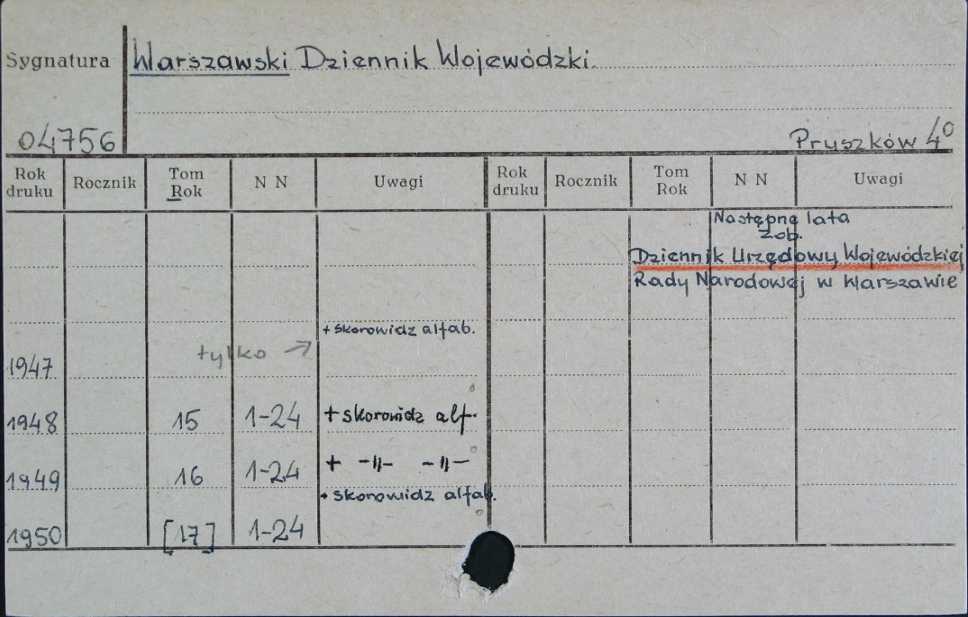 Sygnatura Warszawski Dziennik Wojewódzki.
04756 Pruszków 4º
Rok druku Rocznik Tom Rok N N Uwagi Rok druku Rocznik Tom Rok N N Uwagi
Następne lata
zob.
Dziennik Urzędowy Wojewódzkiej
Rady Narodowej w Warszawie
+ skorowidz alfab.
tylko
1947
1948 15 1-24 + skorowidz alf.
1949 16 1-24 + -"- -"-
+ skorowidz alfab.
1950 [17] 1-24